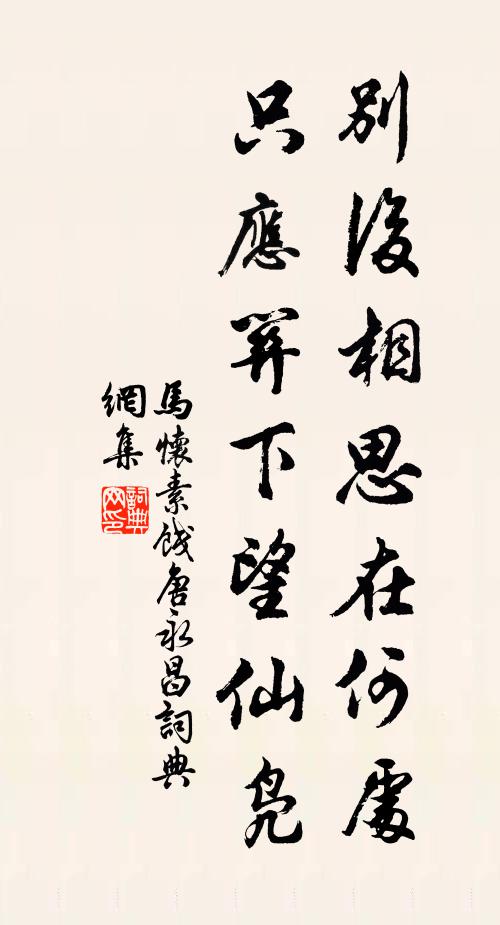 別後相思在何處
只應關下望仙鳧
馬懷素餞唐永昌詞典
網集
詞典
网印